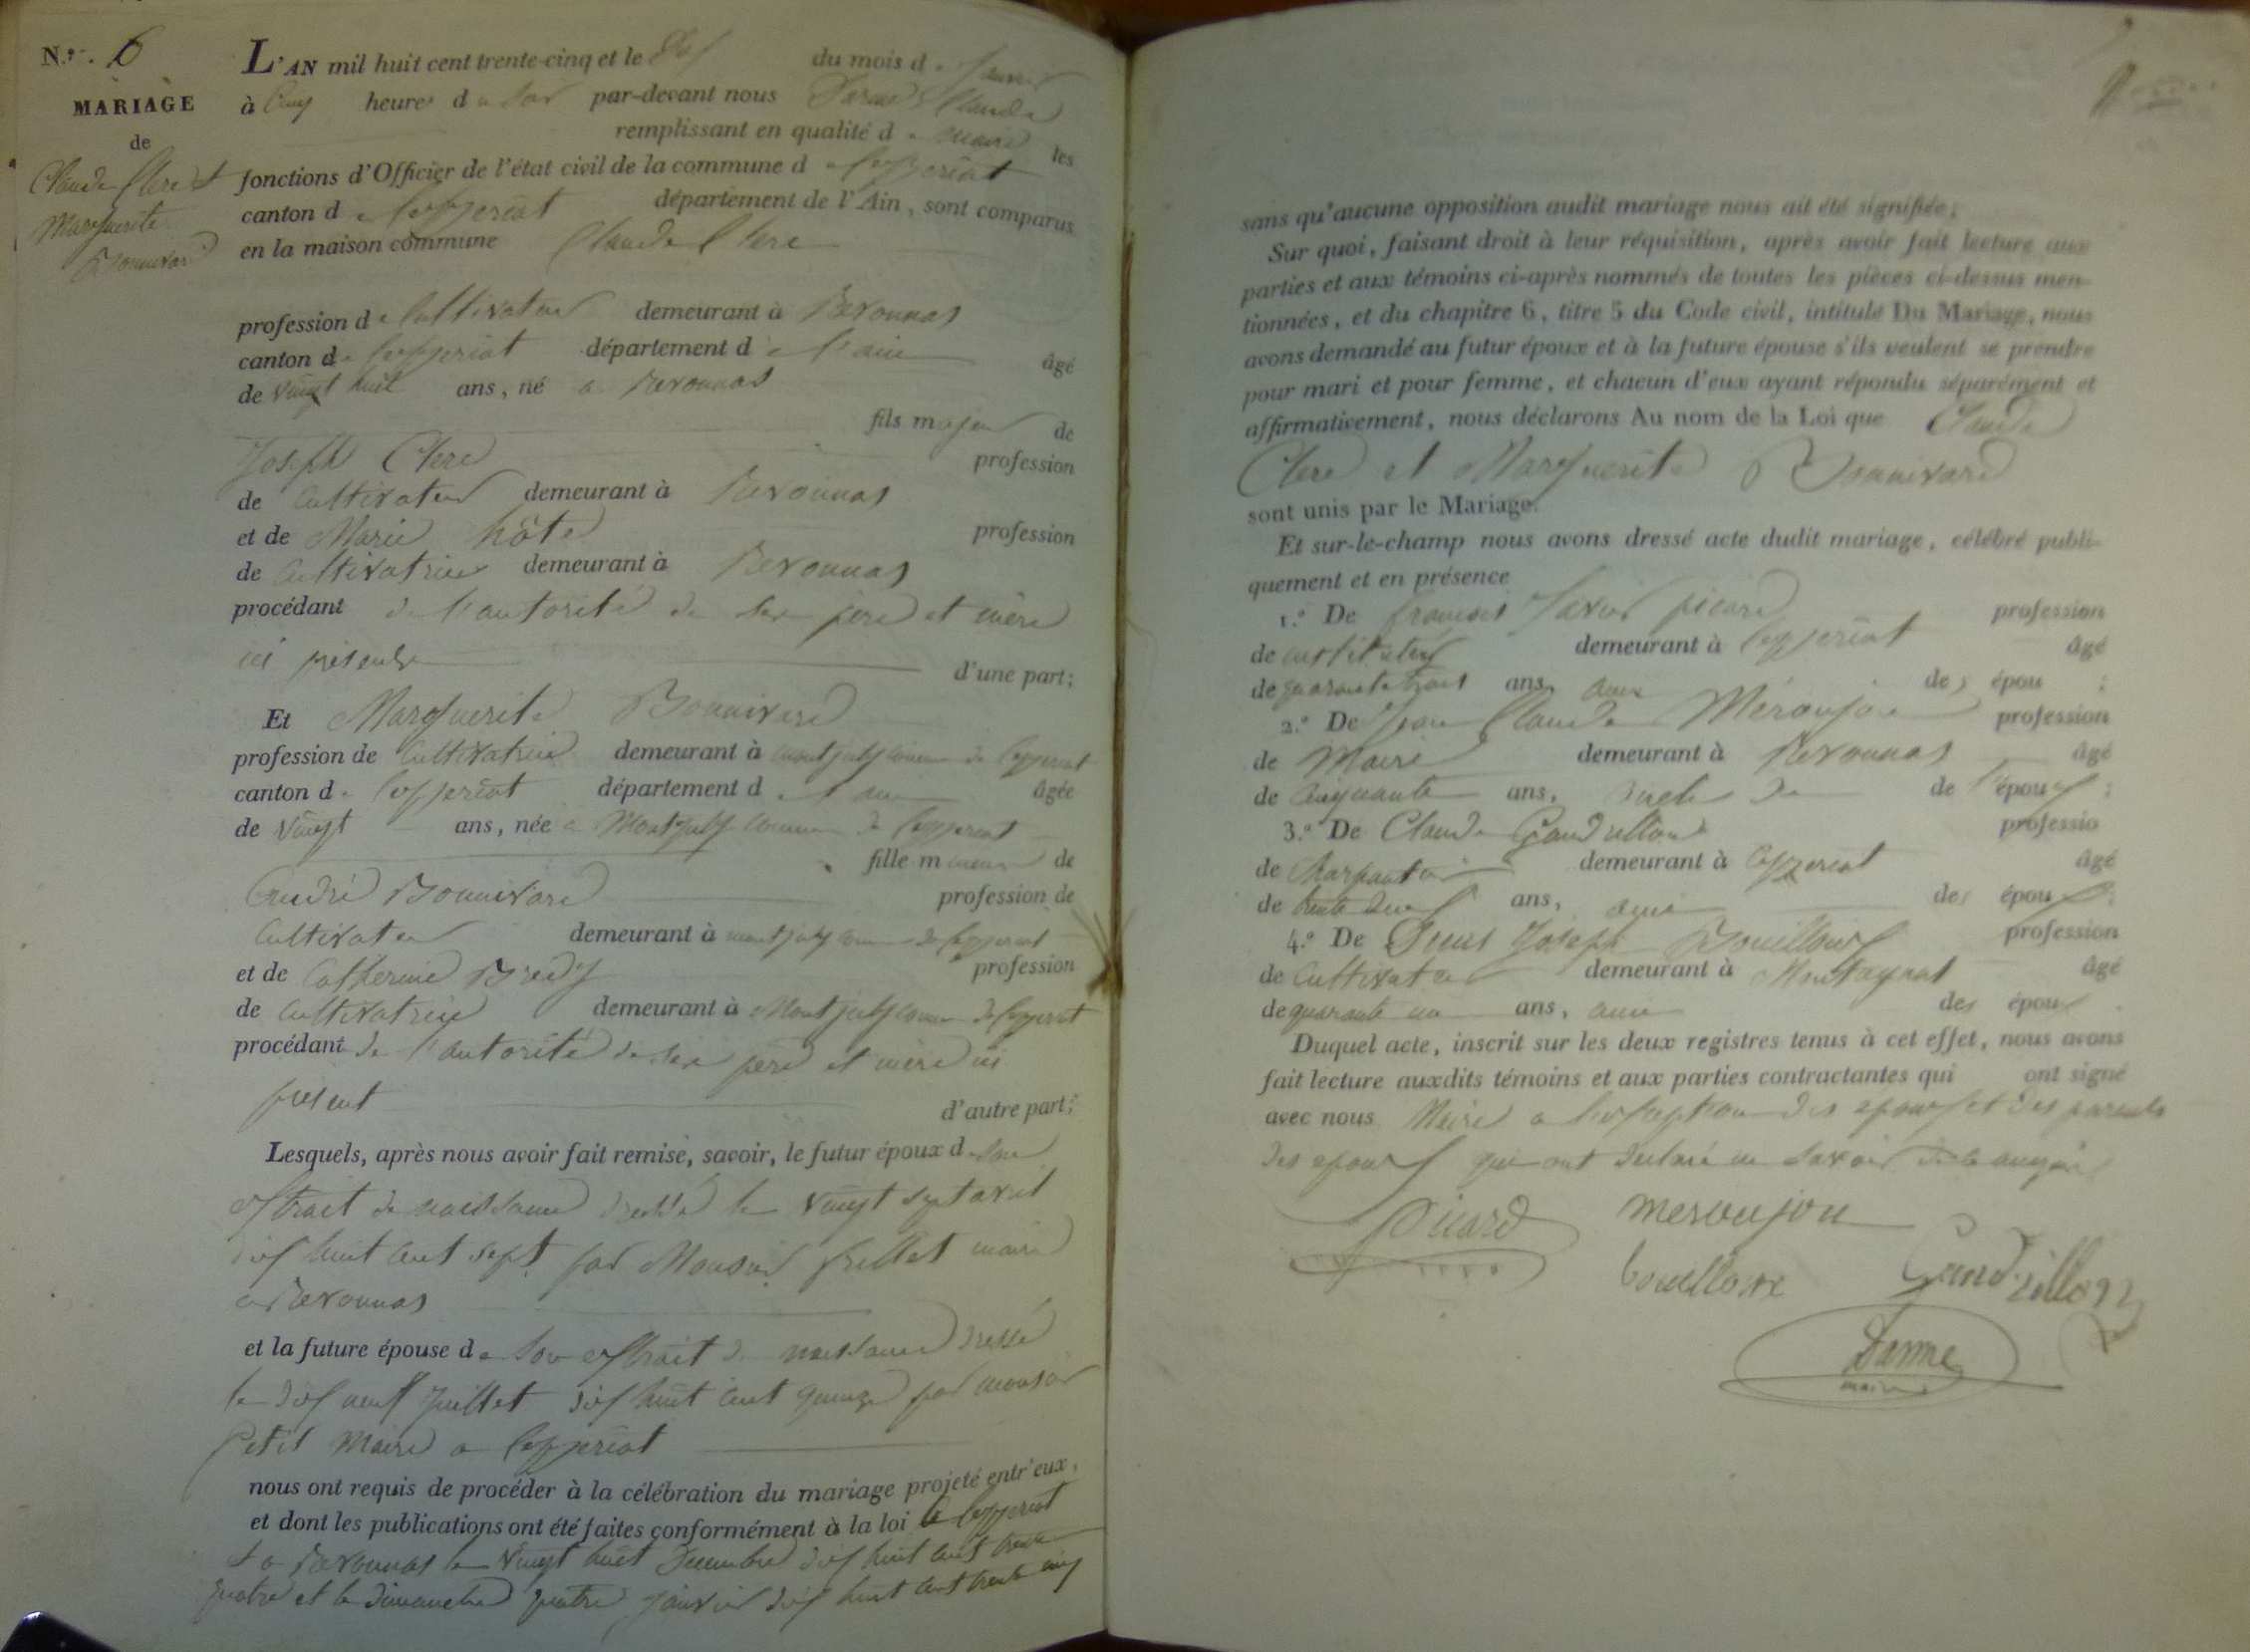 N.º 6
MARIAGE
de
Claude Clerc et
Marguerite
Bonnivard
L'AN mil huit cent trente-cinq et le dix du mois de janvier
à cinq heures du soir par-devant nous Darme Claude
remplissant en qualité de maire les
fonctions d'Officier de l'état civil de la commune de Ceyzeriat
canton de Ceyzeriat département de l'Ain, sont comparus
en la maison commune Claude Clerc
profession de Cultivateur demeurant à Revonnas
canton de Ceyzeriat département de l'ain âgé
de vingt huit ans, né a Revonnas
fils majeur de
Joseph Clerc profession
de Cultivateur demeurant à Revonnas
et de Marie hôte profession
de Cultivatrice demeurant à Revonnas
procédant de l'autorité de ses père et mère
ici présents d'une part;
Et Marguerite Bonnivard
profession de Cultivatrice demeurant à montjuly comune de Ceyzeriat
canton de Ceyzeriat département de l'ain âgée
de vingt ans, née a Montjuly commune de Ceyzeriat
fille mineure de
André Bonnivard profession de
Cultivateur demeurant à montjuly comune de Ceyzeriat
et de Catherine profession
de Cultivatrice demeurant à Montjuly comune de Ceyzeriat
procédant de l'autorité de ses père et mère ici
présent d'autre part;
Lesquels, après nous avoir fait remise, savoir, le futur époux de son
extrait de naissance dressé le vingt sept avril
dix huit cent sept par Monsieur frillet maire
a Revonnas
et la future épouse de son extrait de naissance dressé
le dix neuf juillet dix huit cent quinze par monsieur
Petit Maire a Ceyzeriat
nous ont requis de procéder à la célébration du mariage projeté entr'eux,
et dont les publications ont été faites conformément à la loi a Ceyzeriat
et a Revonnas le vingt huit Decembre dix huit cent trente
quatre et le Dimanche quatre janvier dix huit cent trente cinq
sans qu'aucune opposition audit mariage nous ait été signifiée;
Sur quoi, faisant droit à leur réquisition, après avoir fait lecture aux
parties et aux témoins ci-après nommés de toutes les pièces ci-dessus men-
tionnées, et du chapitre 6, titre 5 du Code civil, intitulé Du Mariage, nous
avons demandé au futur époux et à la future épouse s'ils veulent se prendre
pour mari et pour femme, et chacun d'eux ayant répondu séparément et
affirmativement, nous déclarons Au nom de la Loi que Claude
Clerc et Marguerite Bonnivard
sont unis par le Mariage.
Et sur-le-champ nous avons dressé acte dudit mariage, célébré publi-
quement et en présence
1.º De françois Xavier picard profession
de instituteur demeurant à Ceyzeriat âgé
de quarante trois ans, ami des épou ;
2.º De Jean Claude Méroujou profession
de Maire demeurant à Revonnas âgé
de Cinquante ans, oncle de de l'époux ;
3.º De Claude Gandrillon professio
de Charpentier demeurant à Ceyzeriat âgé
de trente deux ans, ami des époux ;
4.º De Denis Joseph Bouilloux profession
de Cultivateur demeurant à Montagnat âgé
de quarante un ans, ami des époux .
Duquel acte, inscrit sur les deux registres tenus à cet effet, nous avons
fait lecture auxdits témoins et aux parties contractantes qui ont signé
avec nous Maire a l'exception des epoux et des parents
des epoux qui ont déclaré ne savoir de ce enquis
Picard Meroujou
bouilloux Gandrillon
Darme
maire